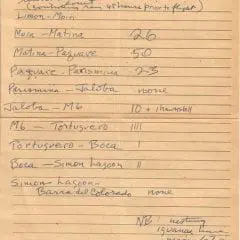 48 hours prior to flight
Limon - Moin
Moin - Matina 26
Matina - Pacuare 50
Pacuare - Parismina 23
Parismina - Jaloba none
Jaloba - M6 10 +
M6 - Tortuguero ||||
Tortuguero - Boca !
Boca - Simon Lagoon ||
Simon Lagoon -
Barra del Colorado none
NB! nesting
iguanas